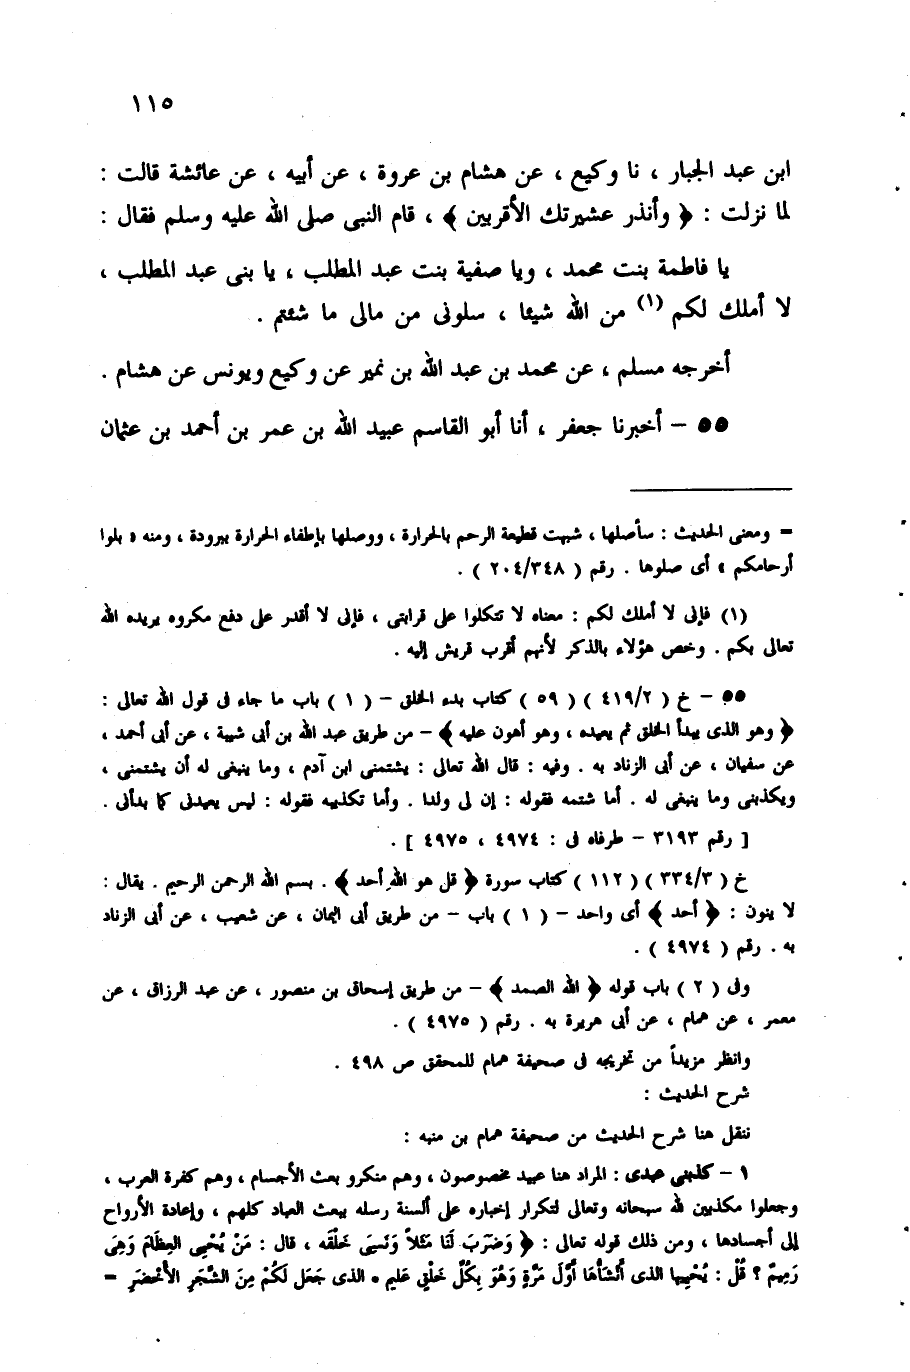 ١١٥
ابن عبد الجبار ، نا وكيع ، عن هشام بن عروة ، عن أبيه ، عن عائشة قالت :
لما نزلت : ﴿ وأنذر عشيرتك الأقربين ﴾ ، قام النبى صلى الله عليه وسلم فقال :
يا فاطمة بنت محمد ، ويا صفية بنت عبد المطلب ، يا بنى عبد المطلب ،
لا أملك لكم (١) من الله شيئا ، سلونى من مالى ما شئتم .
أخرجه مسلم ، عن محمد بن عبد الله بن نمير عن وكيع ويونس عن هشام .
٥٥ – أخبرنا جعفر ، أنا أبو القاسم عبيد الله بن عمر بن أحمد بن عثمان
= ومعنى الحديث : سأصلها ، شبهت قطيعة الرحم بالحرارة ، ووصلها بإطفاء الحرارة ببرودة ، ومنه « بلوا
أرحامكم » أى صلوها . رقم ( ٢٠٤/٣٤٨ ) .
(١) فإنى لا أملك لكم : معناه لا تتكلوا على قرابتى ، فإنى لا أقدر على دفع مكروه يريده الله
تعالى بكم . وخص هؤلاء بالذكر لأنهم أقرب قريش إليه .
٥٥ – خ ( ٤١٩/٢ ) ( ٥٩ ) كتاب بدء الخلق – ( ١ ) باب ما جاء فى قول الله تعالى :
﴿ وهو الذى يبدأ الخلق ثم يعيده ، وهو أهون عليه ﴾ – من طريق عبد الله بن أبى شيبة ، عن أبى أحمد ،
عن سفيان ، عن أبى الزناد به . وفيه : قال الله تعالى : يشتمنى ابن آدم ، وما ينبغى له أن يشتمنى ،
ويكذبنى وما ينبغى له . أما شتمه فقوله : إن لى ولدا . وأما تكذيبه فقوله : ليس يعيدنى كما بدأنى .
[ رقم ٣١٩٣ – طرفاه فى : ٤٩٧٤ ، ٤٩٧٥ ] .
خ ( ٣٣٤/٣ ) ( ١١٢ ) كتاب سورة ﴿ قل هو الله أحد ﴾ . بسم الله الرحمن الرحيم . يقال :
لا ينون : ﴿ أحد ﴾ أى واحد – ( ١ ) باب – من طريق أبى اليمان ، عن شعيب ، عن أبى الزناد
به . رقم ( ٤٩٧٤ ) .
وفى ( ٢ ) باب قوله ﴿ الله الصمد ﴾ – من طريق إسحاق بن منصور ، عن عبد الرزاق ، عن
معمر ، عن همام ، عن أبى هريرة به . رقم ( ٤٩٧٥ ) .
وانظر مزيداً من تخريجه فى صحيفة همام للمحقق ص ٤٩٨ .
شرح الحديث :
ننقل هنا شرح الحديث من صحيفة همام بن منبه :
١ – كذبنى عبدى : المراد هنا عبيد مخصوصون ، وهم منكرو بعث الأجسام ، وهم كفرة العرب ،
وجعلوا مكذبين لله سبحانه وتعالى لتكرار إخباره على ألسنة رسله ببعث العباد كلهم ، وإعادة الأرواح
إلى أجسادها ، ومن ذلك قوله تعالى : ﴿ وَضَرَبَ لَنَا مَثَلاً وَنَسِىَ خَلْقَه ، قال : مَنْ يُحْيِى العِظَامَ وَهِىَ
رَمِيمٌ ؟ قُلْ : يُحْيِيها الذى أَنْشَأها أَوَّلَ مَرَّةٍ وَهُوَ بِكُلِّ خَلْقٍ عَليم • الذى جَعَل لَكُمْ مِنَ الشَّجَرِ الأَخْضَرِ =